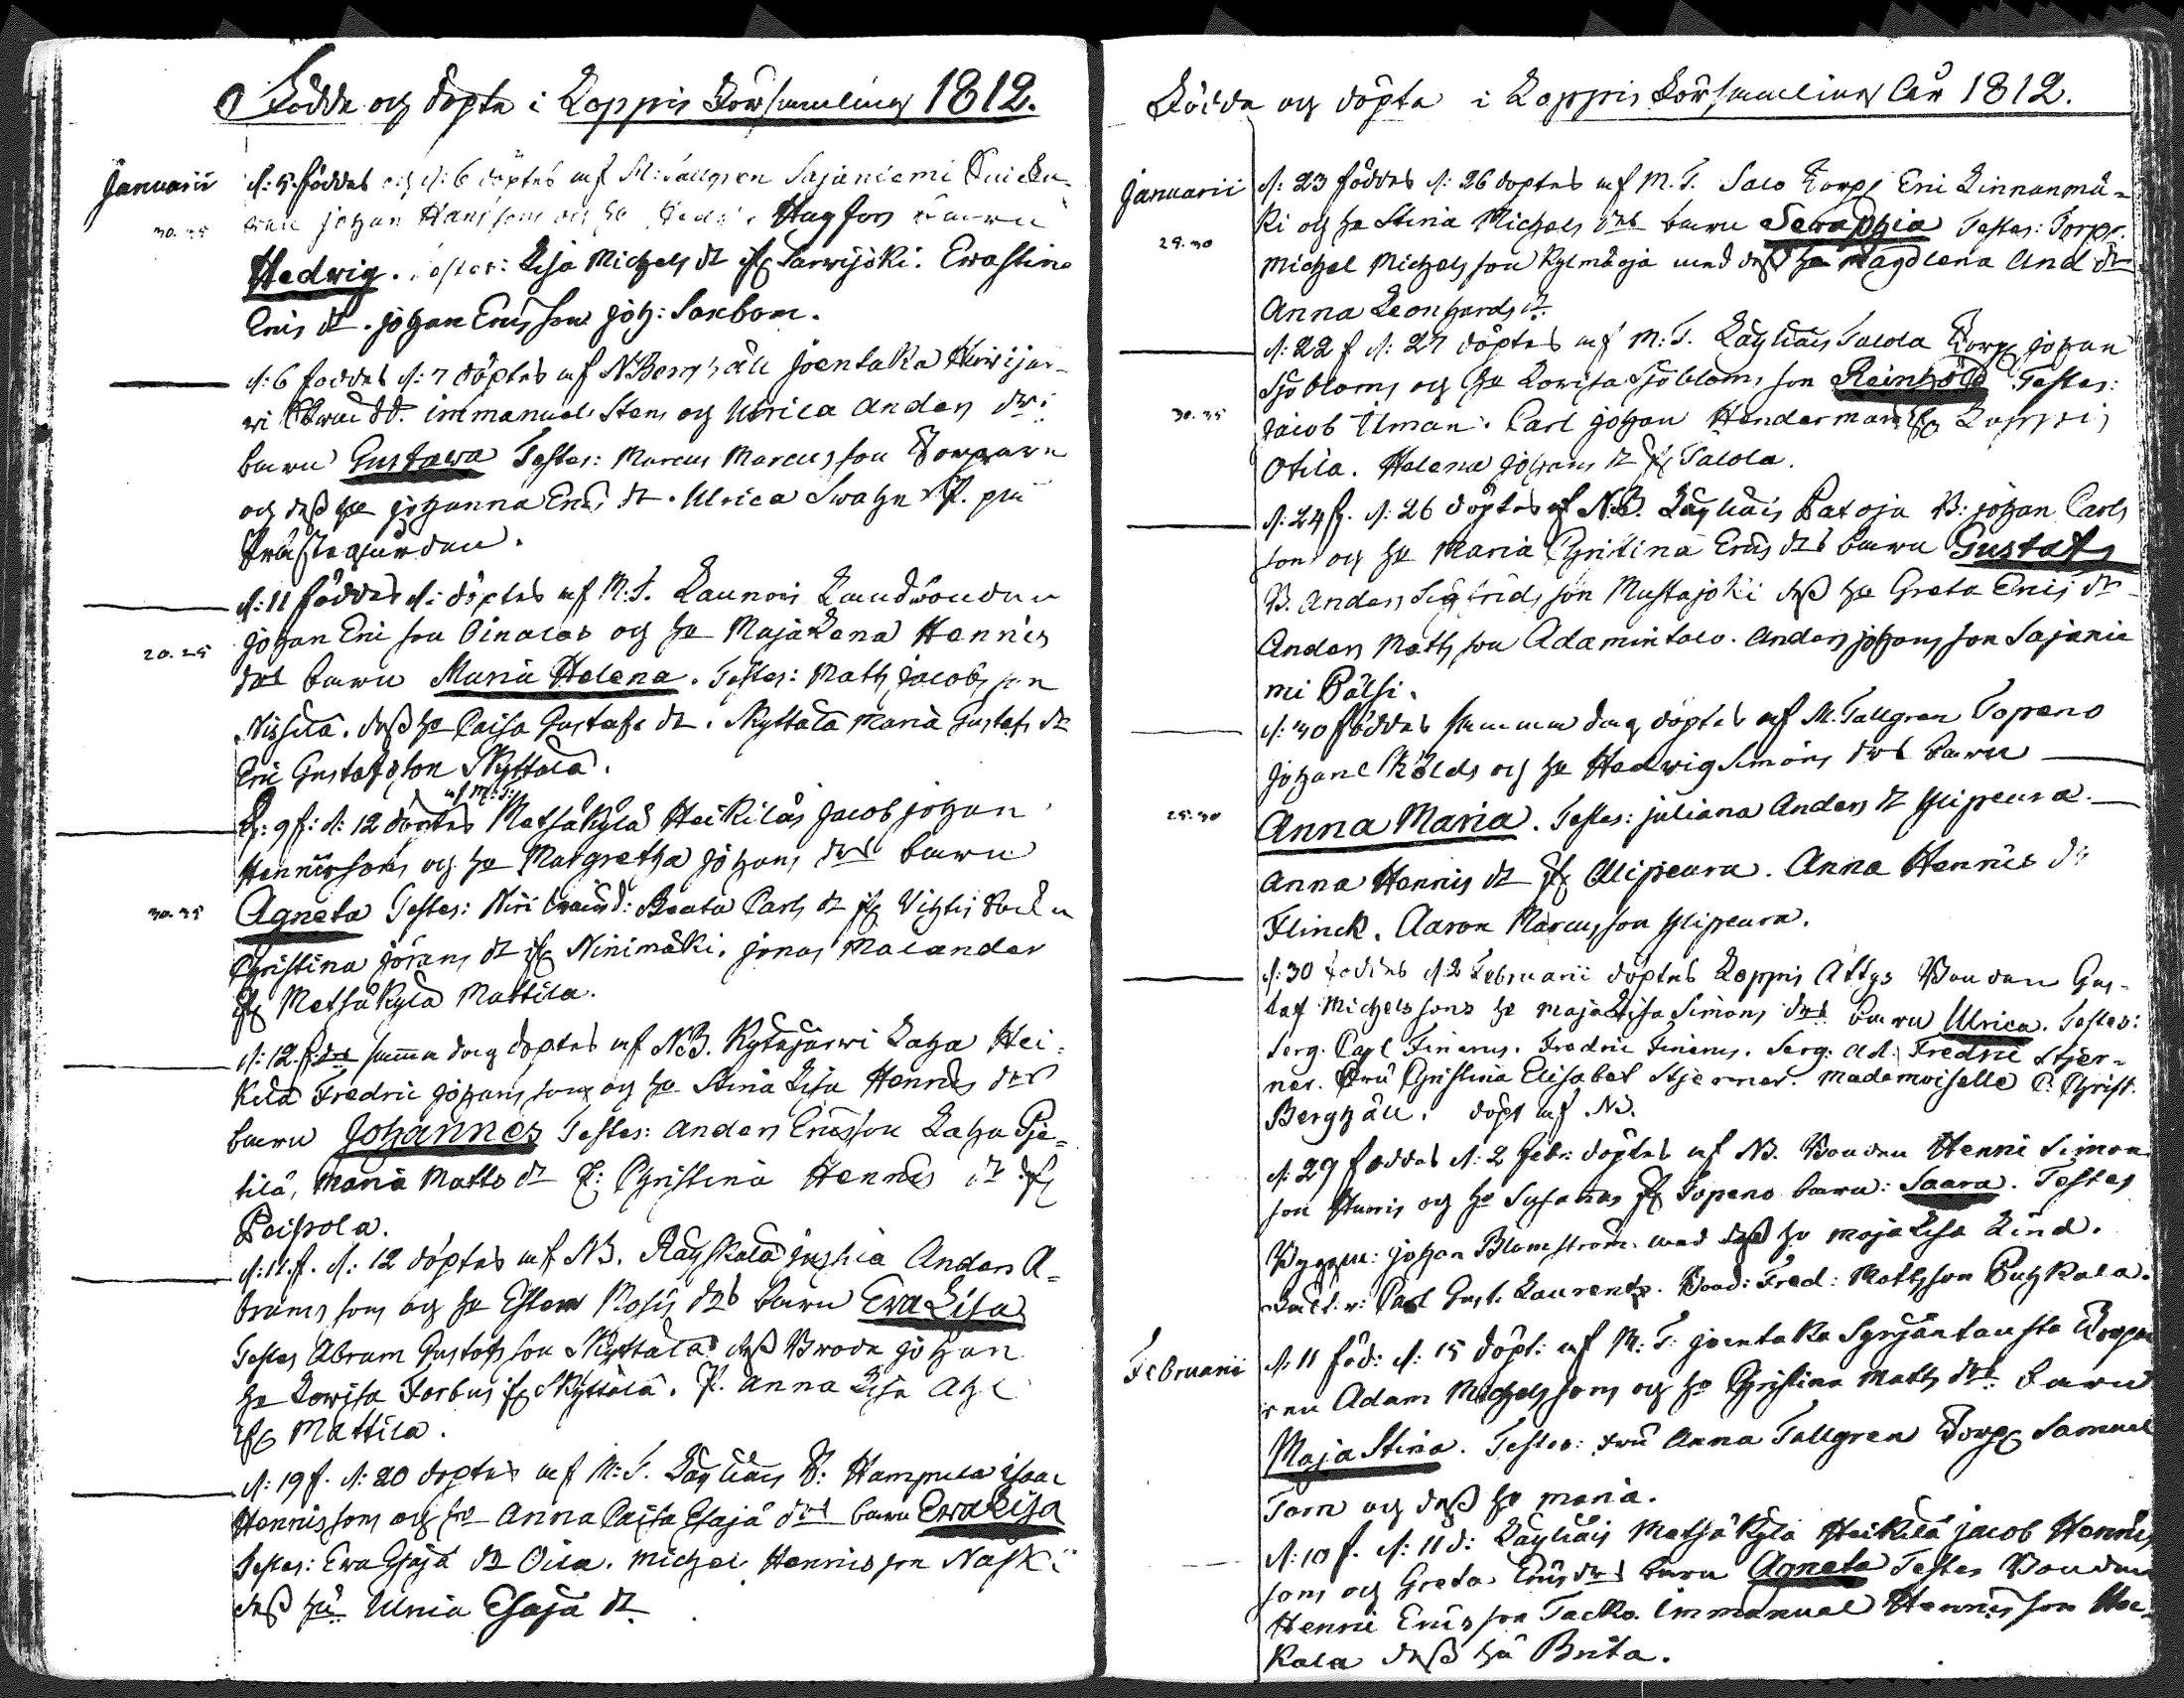 Födde och döpte i Loppis Församling 1812.
Januarii
d: 5 föddes och d: 6 döptes af M: Tallgren Sajaniemi
30. 35
Johan Hanssons och h Hagfors barn
Hedwig. Testes: Lisa Michels dr fr Sarwijoki. Ewastina
Erics dr. Johan Ericsson Joh: Saxbom.
d: 6 föddes d: 7 döptes af N Berghäll Joentaka Hirwijär-
wi Immanuel Stens och Ulrica Anders drs
barn Gustawa Testes: Marcus Marcusson Torparn
och dess hu Johanna Erics dr. Ulrica Swahn P. på
Prästegården.
d: 11 föddes d: döptes af M: T. Launois Landbonden
20. 25
Johan Ericsson och hu Maja Lena Henrics
drs barn Maria Helena. Testes: Matts Jacobsson
Nissilä. dess hu Caisa Gustafs dr. Skyttälä Maria Gustafs dr
Eric Gustafsson Skyttälä.
af M: T:
d: 9 f: d: 12 döptes Metsäkylä Heikiläs Jacob Johan
Henricsons och hu Margretha Johans drs barn
30. 35
Agneta Testes: Beata Carls dr fr
Christina Jörans dr fr Ninimäki. Jonas Malander
fr Metsäkylä Mattila.
d: 12 f. samma dag döptes af NB. Kytäjärwi Laha Hei-
kilä Fredric Johanssons och hu Stina Lisa Henrics drs
barn Johannes Testes: Anders Ericsson Laha Pie-
tilä, Maria Matts dr P: Christina Henrics dr fr
Peipola.
d: 11 f. d: 12 döptes af NB. Räyskälä Anders A-
brams sons och hu Ester drs barn Ewa Lisa
Testes Abram Gustafsson Skyttälä dess Broder Johan
hu Lowisa Forbus fr Skyttälä. P. Anna Lisa
fr Mattila.
d: 19 f. d: 20 döptes af M: T. Läyliäis B: Isaac
Henricssons och hu Anna Caisa Esaja drs barn Ewa Lisa
Testes: Ewa Esaja dr Oila. Michel Henricsson
dess hu Ulrica Esaja dr
Födde och döpte i Loppis Församling År 1812.
Januarii
d: 23 föddes d: 26 döptes af M. T. Salo Torp: Eric Linnanmä-
29. 30
ki och hu Stina Michels drs barn Seraphia Testes: Torpr.
Michel Michelsson Kylmäoja med dess hu Magdlena And dr
Anna Leonhards dr.
d: 22 f d: 27 döptes af M: T. Läyliäis Talola Torp: Johan
Sjöbloms och hu Lowisa Sjöbloms son Reinhold Testes:
30. 35
Jacob Uman. Carl Johan Henderman fr Loppis
Otila. Helena Johans dr fr Talola.
d: 24 f. d: 26 döptes af NB. Läyliäis Patoja B: Johan Carls
son och hu Maria Christina Erics drs barn Gustaf
B. Anders Sigfridsson Mustajoki dess hu Greta Erics dr
Anders Mattsson Adamintalo. Anders Johansson Sajanie
mi Pälsi.
d: 30 föddes samma dag döptes af M. Tallgren Topeno
Johan Skölds och hu Hedwig Simons drs barn
25. 30
Anna Maria. Testes: Juliana Anders dr Ylipeura.
Anna Henrics dr fr Alipeura. Anna Henrics dr
Flinck. Aaron Marcusson Ylipeura.
d: 30 föddes d. 2 Februarii döptes Loppis Attgs Bonden Gus-
taf Michelssons hu Maja Lisa Simons drs barn Ulrica. Testes:
Serg. Carl Finerus. Fredric Finerus. Serg: Ad. Fredric Stjer-
ner. Fru Christina Elisabet Stjerner. Mademoiselle C. Christ.
Berghäll. döpt af NB.
d: 29 föddes d: 2 Febr: döptes af NB. Bonden Henric Simon
son Hunis och hu Susannas fr Topeno barn: Saara. Testes
Byggm: Johan Blomström med dess hu Maja Lisa Lind.
Carl Gust: Laurentz. Bond: Fred: Mattsson Puhkala.
Februarii
d. 11 föd: d: 15 döpt: af M: T: Joentaka Syrjäntausta Torpa
ren Adam Michelssons och hu Christina Matts drs barn
Maja Stina. Testes: Fru Anna Tallgren Torp: Samuel
Torn och dess hu Maria.
d: 10 f. d: 11 d: Läyliäis Metsäkylä Heikilä Jacob Henrics
sons och Greta Erics drs barn Agneta Testes Bonden
Henric Ericsson Tacko. Immanuel Henricsson
kala dess hu Brita.